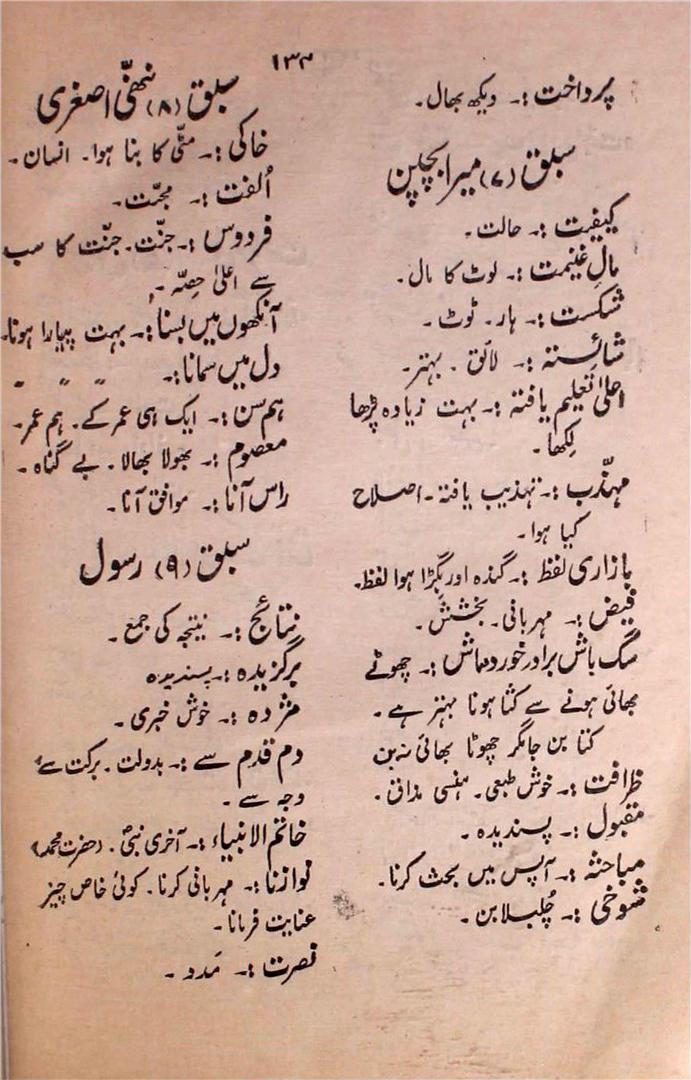 ۱۳۴
پرداخت :۔ دیکھ بھال۔
سبق (۷) میرا بچپن
کیفیت :۔ حالت۔
مالِ غنیمت :۔ لوٹ کا مال۔
شکست :۔ ہار۔ ٹوٹ۔
شائستہ :۔ لائق۔ بہتر۔
اعلیٰ تعلیم یافتہ :۔ بہت زیادہ پڑھا
لِکھا۔
مہذّب :۔ تہذیب یافتہ۔ اصلاح
کیا ہوا۔
بازاری لفظ :۔ گندہ اور بگڑا ہوا لفظ۔
فیض :۔ مہربانی۔ بخشش۔
سگ باش برادر خورد مباش :۔ چھوٹے
بھائی ہونے سے کتّا ہونا بہتر ہے۔
کتا بن جا مگر چھوٹا بھائی نہ بن
ظرافت :۔ خوش طبعی۔ ہنسی مذاق۔
مقبول :۔ پسندیدہ۔
مباحثہ :۔ آپس میں بحث کرنا۔
شوخی :۔ چُلبلا پن۔
سبق (۸) ننھّی اصغری
خاکی :۔ مٹّی کا بنا ہوا۔ انسان۔
اُلفت :۔ محبّت۔
فردوس :۔ جنّت۔ جنّت کا سب
سے اعلیٰ حِصّہ۔
آنکھوں میں بسنا :۔ بہت پیارا ہونا۔
دل میں سمانا :۔ 〃 〃 〃
ہم سن :۔ ایک ہی عمر کے۔ ہم عمر۔
معصوم :۔ بھولا بھالا۔ بے گناہ۔
راس آنا :۔ موافق آنا۔
سبق (۹) رسول
نتائج :۔ نتیجہ کی جمع۔
برگزیدہ :۔ پسندیدہ
مژدہ :۔ خوش خبری۔
دم قدم سے :۔ بدولت۔ برکت سے
وجہ سے۔
خاتم الانبیاء :۔ آخری نبیؐ۔ (حضرت محمدؐ)
نوازنا :۔ مہربانی کرنا۔ کوئی خاص چیز
عنایت فرمانا۔
نصرت :۔ مَدد۔